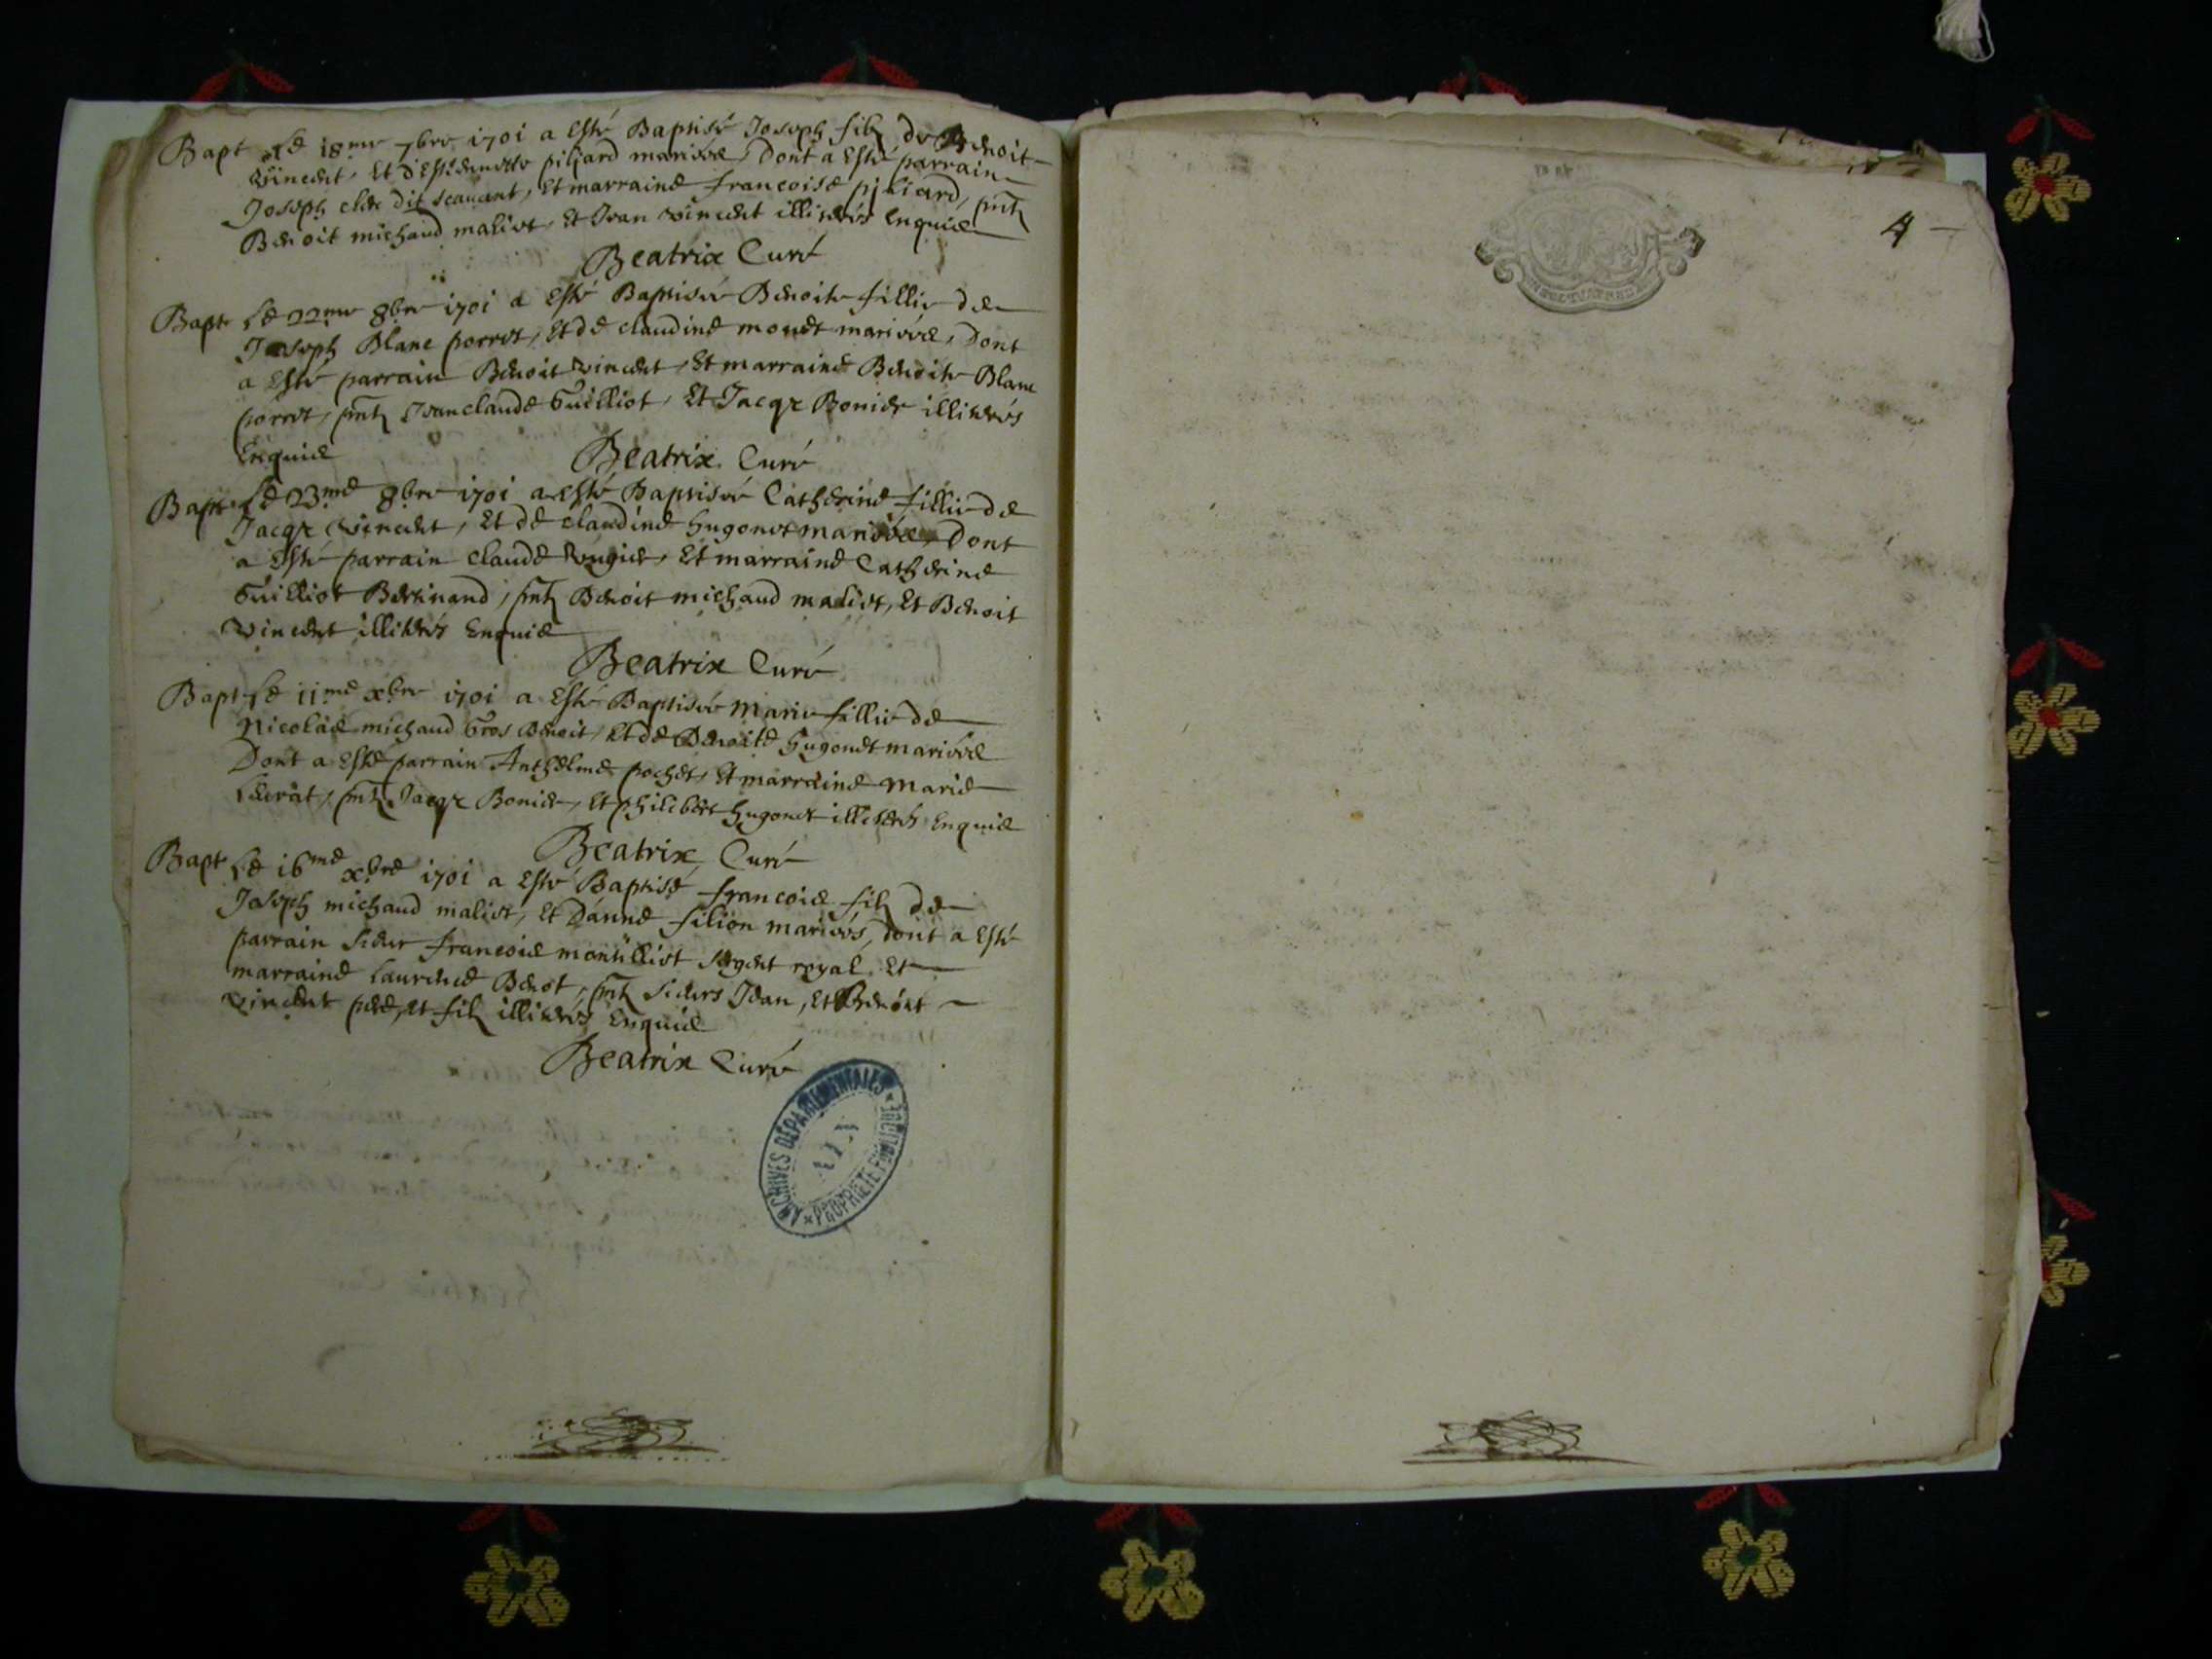 Bapt Le 18me 7bre 1701 a esté Baptisé Joseph filz de Benoit
Vincent, et d'Estiennette piljard mariees, Dont a esté parrain
Joseph clerc dit scauant, et marraine francoise piliard, pntz
Benoit michaud maliet, et Jean vincent illiterés Enquis
Beatrix Curé
Bapt Le 22me 8bre 1701 a esté Baptisée Benoite fillie de
Joseph Blanc perret, et de claudine monet mariées, Dont
a esté parrain Benoit vincent, et marraine Benoite Blanc
perret, pntz Jeanclaude Guilliot, et Jacqz Bonier illiterés
Enquis
Beatrix Curé
Bapt Le 23me 8bre 1701 a esté Baptisée Catherine fillie de
Jacqz Vincent, et de claudine hugonet mariées, Dont
a esté parrain claude et marraine Catherine
Guilliot Bertinand, pntz Benoit michaud maliet, et Benoit
vincent illiterés Enquis
Beatrix Curé
Bapt Le 11me xbre 1701 a esté Baptisée marie fillie de
Nicolas michaud Gros Benoit, et de Benoite hugonet mariées
Dont a esté parrain Anthelme pochet, et marraine marie
pntz Jacqz Bonier, et philibert hugonet illiterés Enquis
Beatrix Curé
Bapt Le 16me xbre 1701 a esté Baptisé francois filz de
Joseph michaud maliet, et D'anne filion mariés, dont a esté
parrain sieur francois montilliet sergent royal, et
marraine Laurence Benot, pntz sieurs Jean, et Benoit
vincent pere, et filz illiterés Enquis
Beatrix Curé
ARCHIVES DÉPARTEMENTALES
AIN
PROPRIÉTÉ PUBLIQUE
4